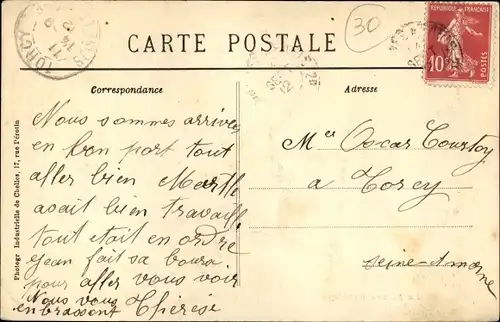 TORCY
30
RÉPUBLIQUE FRANÇAISE
10c
CARTE POSTALE
Correspondance
Adresse
Nous sommes arrivés
en bon port tout
aller bien
avait bien travaillé
tout était en ordre
Jean fait sa
pour aller vous voir
Nous vous
embrassont Thérèse
Mr Oscar Courtoy
a Torcy
Seine-et marne
Photogr Industrielle de Chelles, 17, rue Pérotin